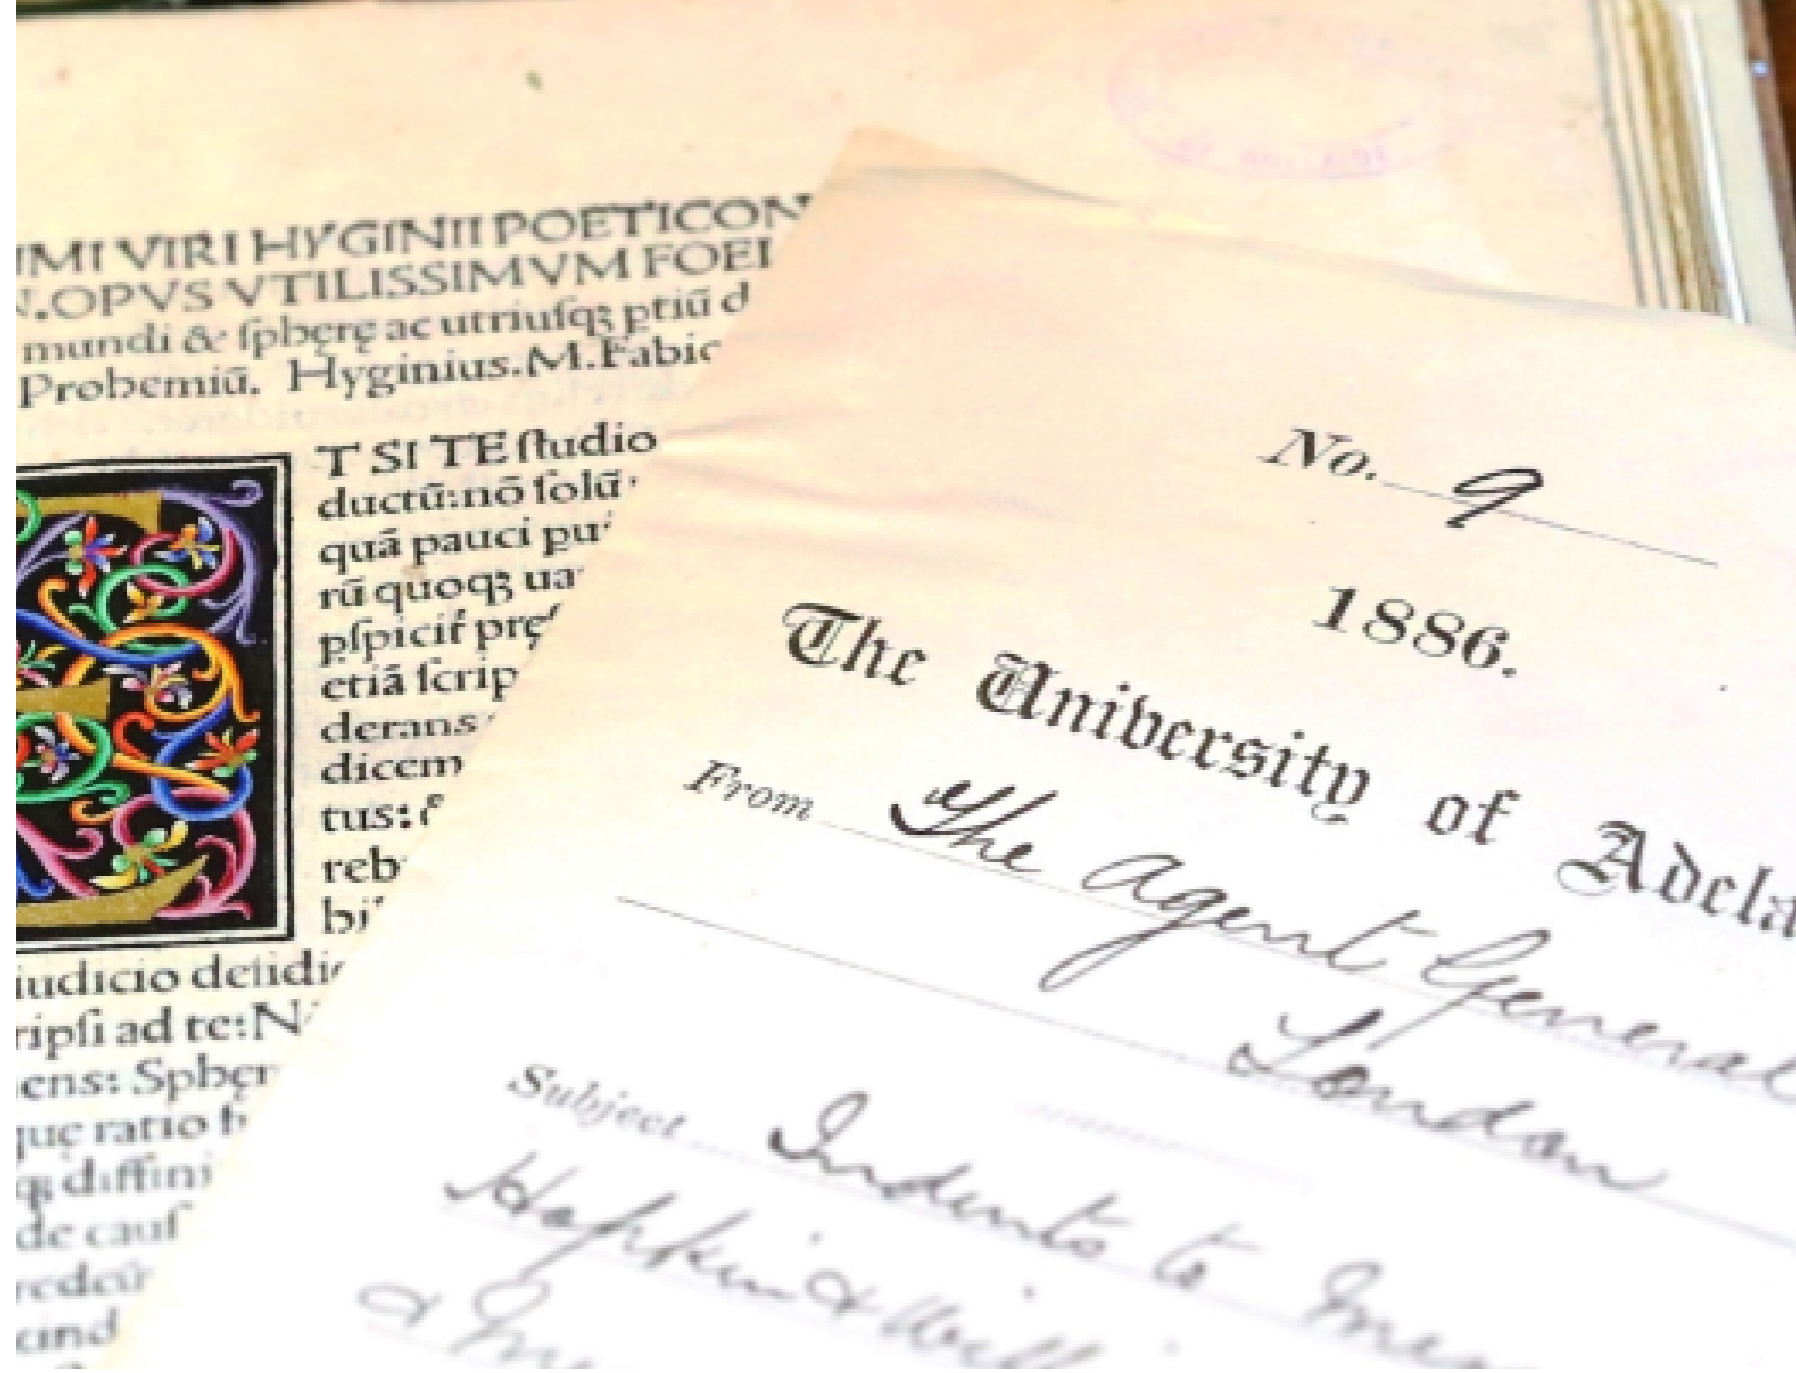 IMI VIRI HYGINII POETICON
N.OPVS VTILISSIMVM FOEI
mundi & ſpherę ac utriuſqꝫ ptiū d
Prohemiū. Hyginius.M.Fabic
T SI TE ſtudio
ductū:nō ſolū
quā pauci pu
rū quoqꝫ ua
pſpicit̃ prę
etiā ſcrip
derans
dicem
tus:
reb
bi
iudicio deſidi
ripſi ad te:N
ens: Sphęr
quę ratio h
qꝫ diffini
de cauſ
redeū
cind
No. 9
1886.
The University of Adela
From The Agent General
London
Subject Indents to Mes
Hopkin & Will
&